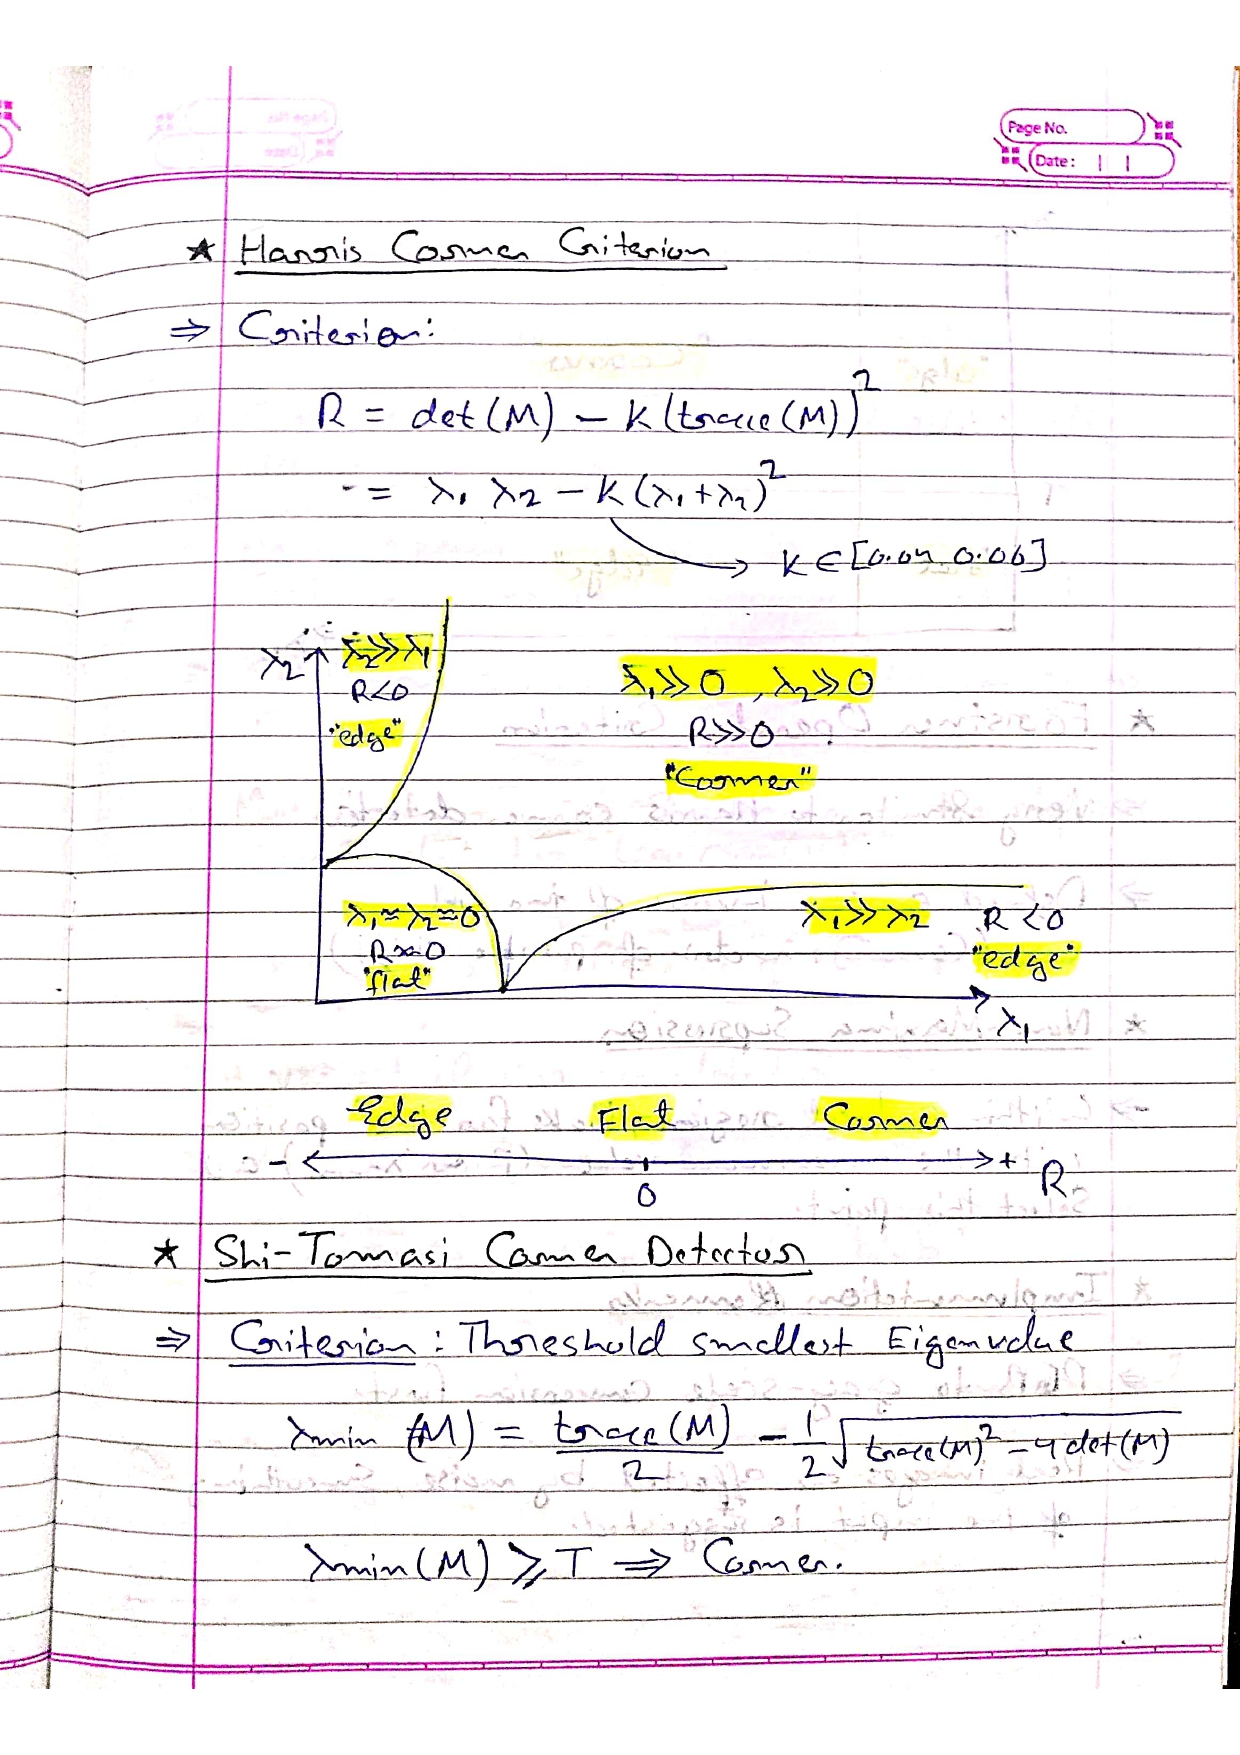 Page No.
Date: | |
★ Harris Corner Criterion
⇒ Criterion:
R = det(M) - K(trace(M))²
= λ₁ λ₂ - K(λ₁+λ₂)²
K ∈ [0.04, 0.06]
λ₂
λ₂≫λ₁
R<0
"edge"
λ₁≫0, λ₂≫0
R≫0
"Corner"
λ₁≈λ₂≈0
R≈0
"flat"
λ₁≫λ₂ R<0
"edge"
λ₁
Edge Flat Corner
- + R
0
★ Shi-Tomasi Corner Detector
⇒ Criterion: Threshold smallest Eigenvalue
λmin (M) = trace(M)/2 - 1/2 √(trace(M)² - 4det(M))
λmin(M) ≥ T ⇒ Corner.